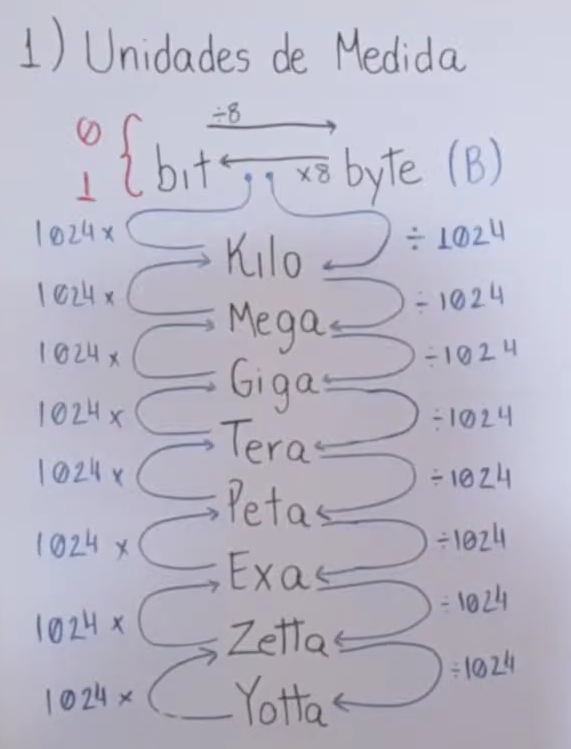 1) Unidades de Medida
÷8
0
1 { bit byte (B)
x8
1024 x ÷ 1024
Kilo
1024 x ÷ 1024
Mega
1024 x ÷1024
Giga
1024 x ÷1024
Tera
1024 x ÷1024
Peta
1024 x ÷1024
Exa
1024 x ÷1024
Zetta
1024 x ÷1024
Yotta